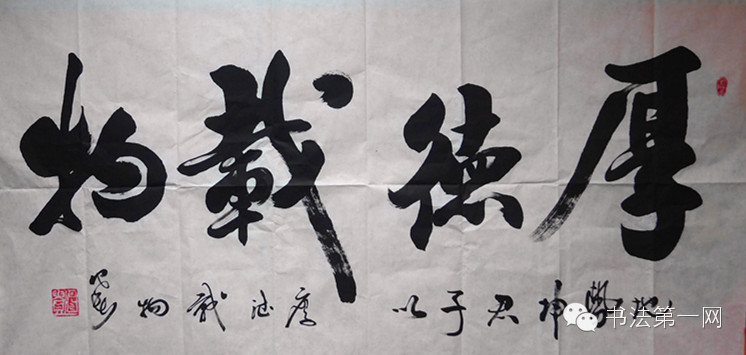 厚德載物
地勢坤君子以厚德載物
书法第一网